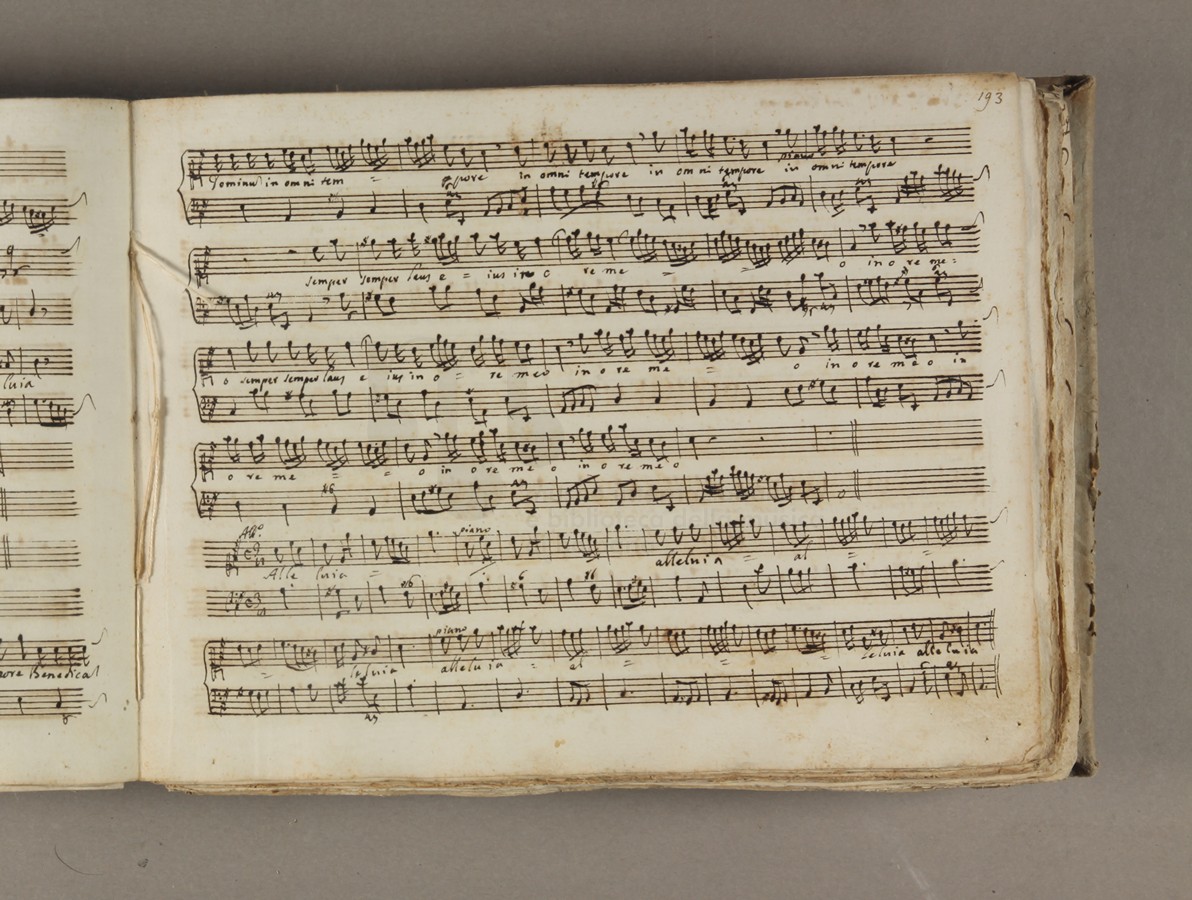 luia
Benedica
193
Dominus in omni tem = pore in omni tempore in omni tempore in omni tempore
piano
semper semper laus e = ius in o re me = o in o re me =
o semper semper laus e ius in o = re meo in o re me = o in o re me o in
o re me = = o in o re me o in o re me o
All.o
piano
Alle luia = alleluia = al =
piano
= leluia alleluia = al = = leluia alleluia